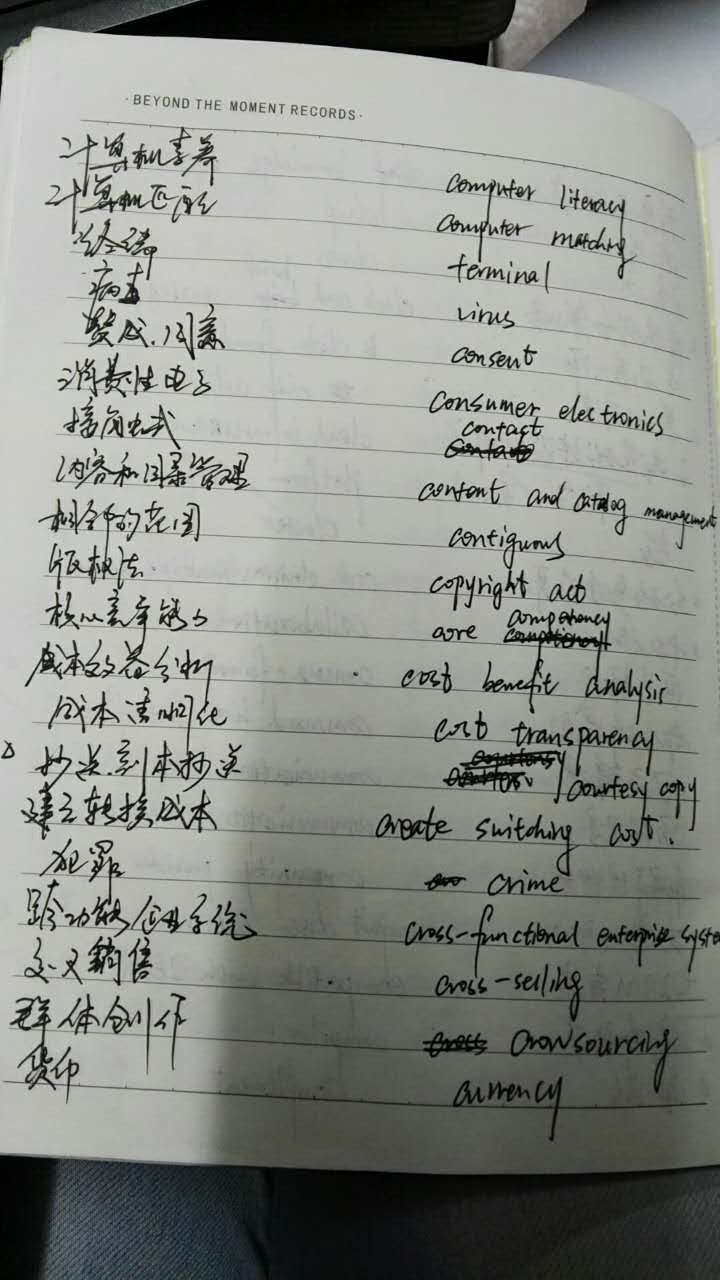 ·BEYOND THE MOMENT RECORDS·
计算机素养 computer literacy
计算机匹配 computer matching
终端 terminal
病毒 virus
赞成.同意 consent
消费性电子 consumer electronics
接角虫式 contact
内容和目录管理 content and catalog management
相邻的范围 contiguous
版权法 copyright act
核心竞争能力 core competency
成本效益分析 cost benefit analysis
成本透明化 cost transparency
抄送.副本抄送 courtesy copy
建立转换成本 create switching cost.
犯罪 crime
跨功能企业系统 cross-functional enterprise syste
交叉销售 cross-selling
群体创作 crowsourcing
货币 currency